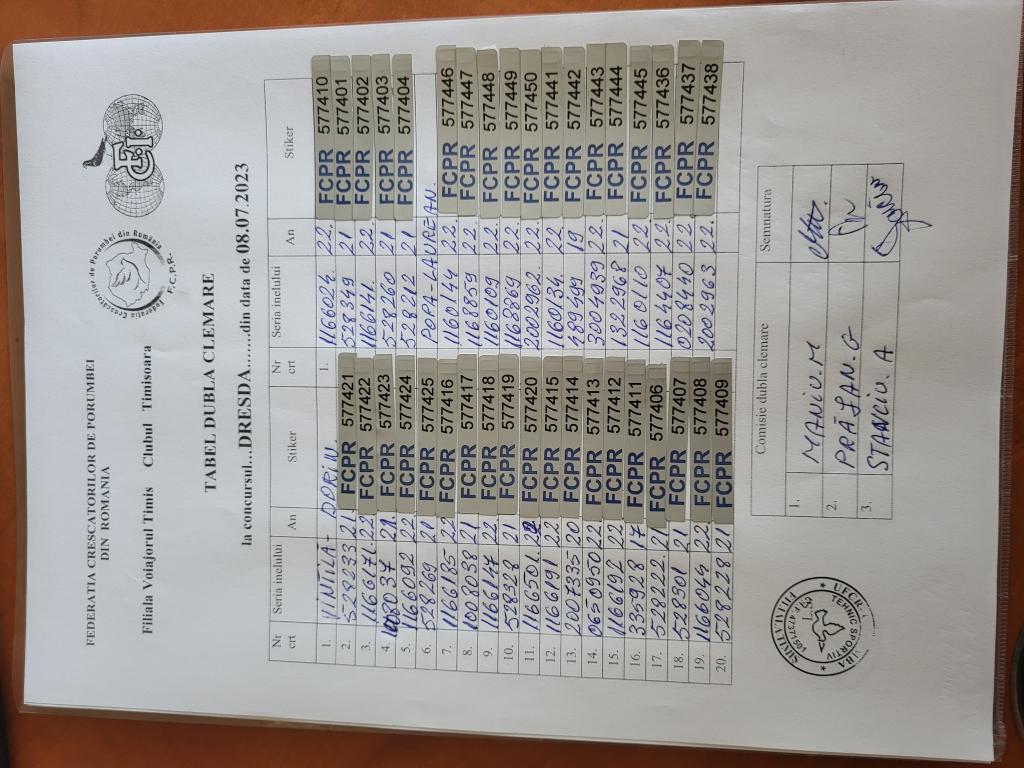 FEDERATIA CRESCATORILOR DE PORUMBEI
DIN ROMANIA
Filiala Voiajorul Timis Clubul Timisoara
Federatia Crescatorilor de Porumbei din România
F.C.P.R.
TABEL DUBLA CLEMARE
la concursul...DRESDA.......din data de 08.07.2023
Nr crt Seria inelului An Stiker Nr crt Seria inelului An Stiker
1. VINTILĂ - DORIN 1. 1166024. 22. FCPR 577410
2. 528233 21 FCPR 577421 528349 21 FCPR 577401
3. 1166171 22 FCPR 577422 1166141. 22. FCPR 577402
4. 1008037 21. FCPR 577423 528260 21 FCPR 577403
5. 1166092 22 FCPR 577424 528212 21 FCPR 577404
6. 528269 21 FCPR 577425 POPA-LAUREAN.
7. 1166185 22 FCPR 577416 1160144 22. FCPR 577446
8. 1008038 21 FCPR 577417 1168859 22 FCPR 577447
9. 1166147 22 FCPR 577418 1160109 22. FCPR 577448
10. 528328 21 FCPR 577419 1168869 22. FCPR 577449
11. 1166501. 22 FCPR 577420 2002962. 22. FCPR 577450
12. 1166191 22 FCPR 577415 1160134. 22 FCPR 577441
13. 2007335 20 FCPR 577414 489499 19 FCPR 577442
14. 0650950 22 FCPR 577413 3004939 22. FCPR 577443
15. 1166192 22 FCPR 577412 1322968 21 FCPR 577444
16. 335928 17 FCPR 577411 1160110 22 FCPR 577445
17. 528222. 21 FCPR 577406 1164407 22 FCPR 577436
18. 528301 21 FCPR 577407 0208440 22 FCPR 577437
19. 1166044 22 FCPR 577408 2002963 22. FCPR 577438
20. 528228 21 FCPR 577409
Comisie dubla clemare Semnatura
1. MANIU.M
2. PRĂŢAN.G
3. STANCIU. A
UFCR
TEHNIC SPORTIV